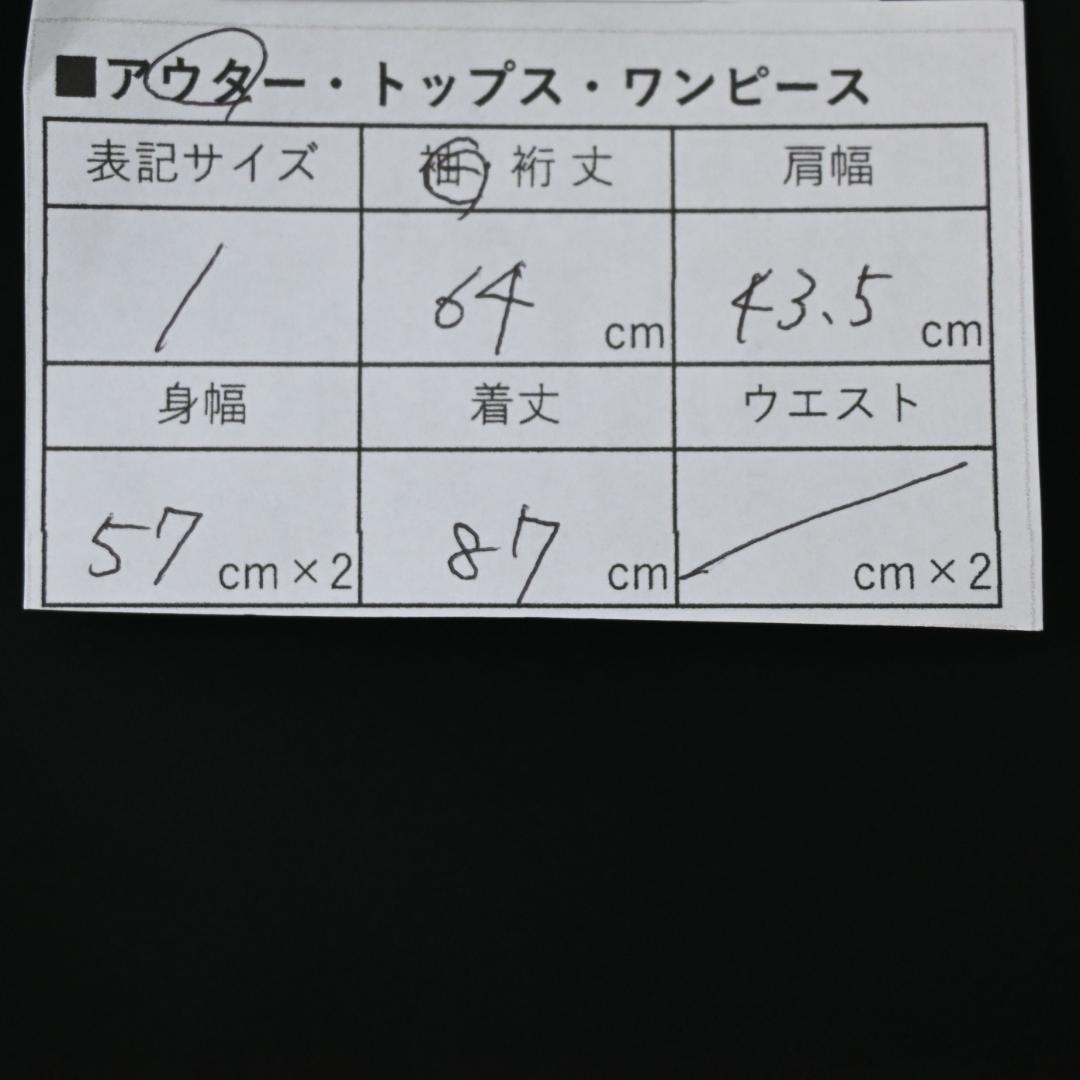 ■アウター・トップス・ワンピース
表記サイズ 袖・裄丈 肩幅
1 64 cm 43.5 cm
身幅 着丈 ウエスト
57 cm×2 87 cm cm×2